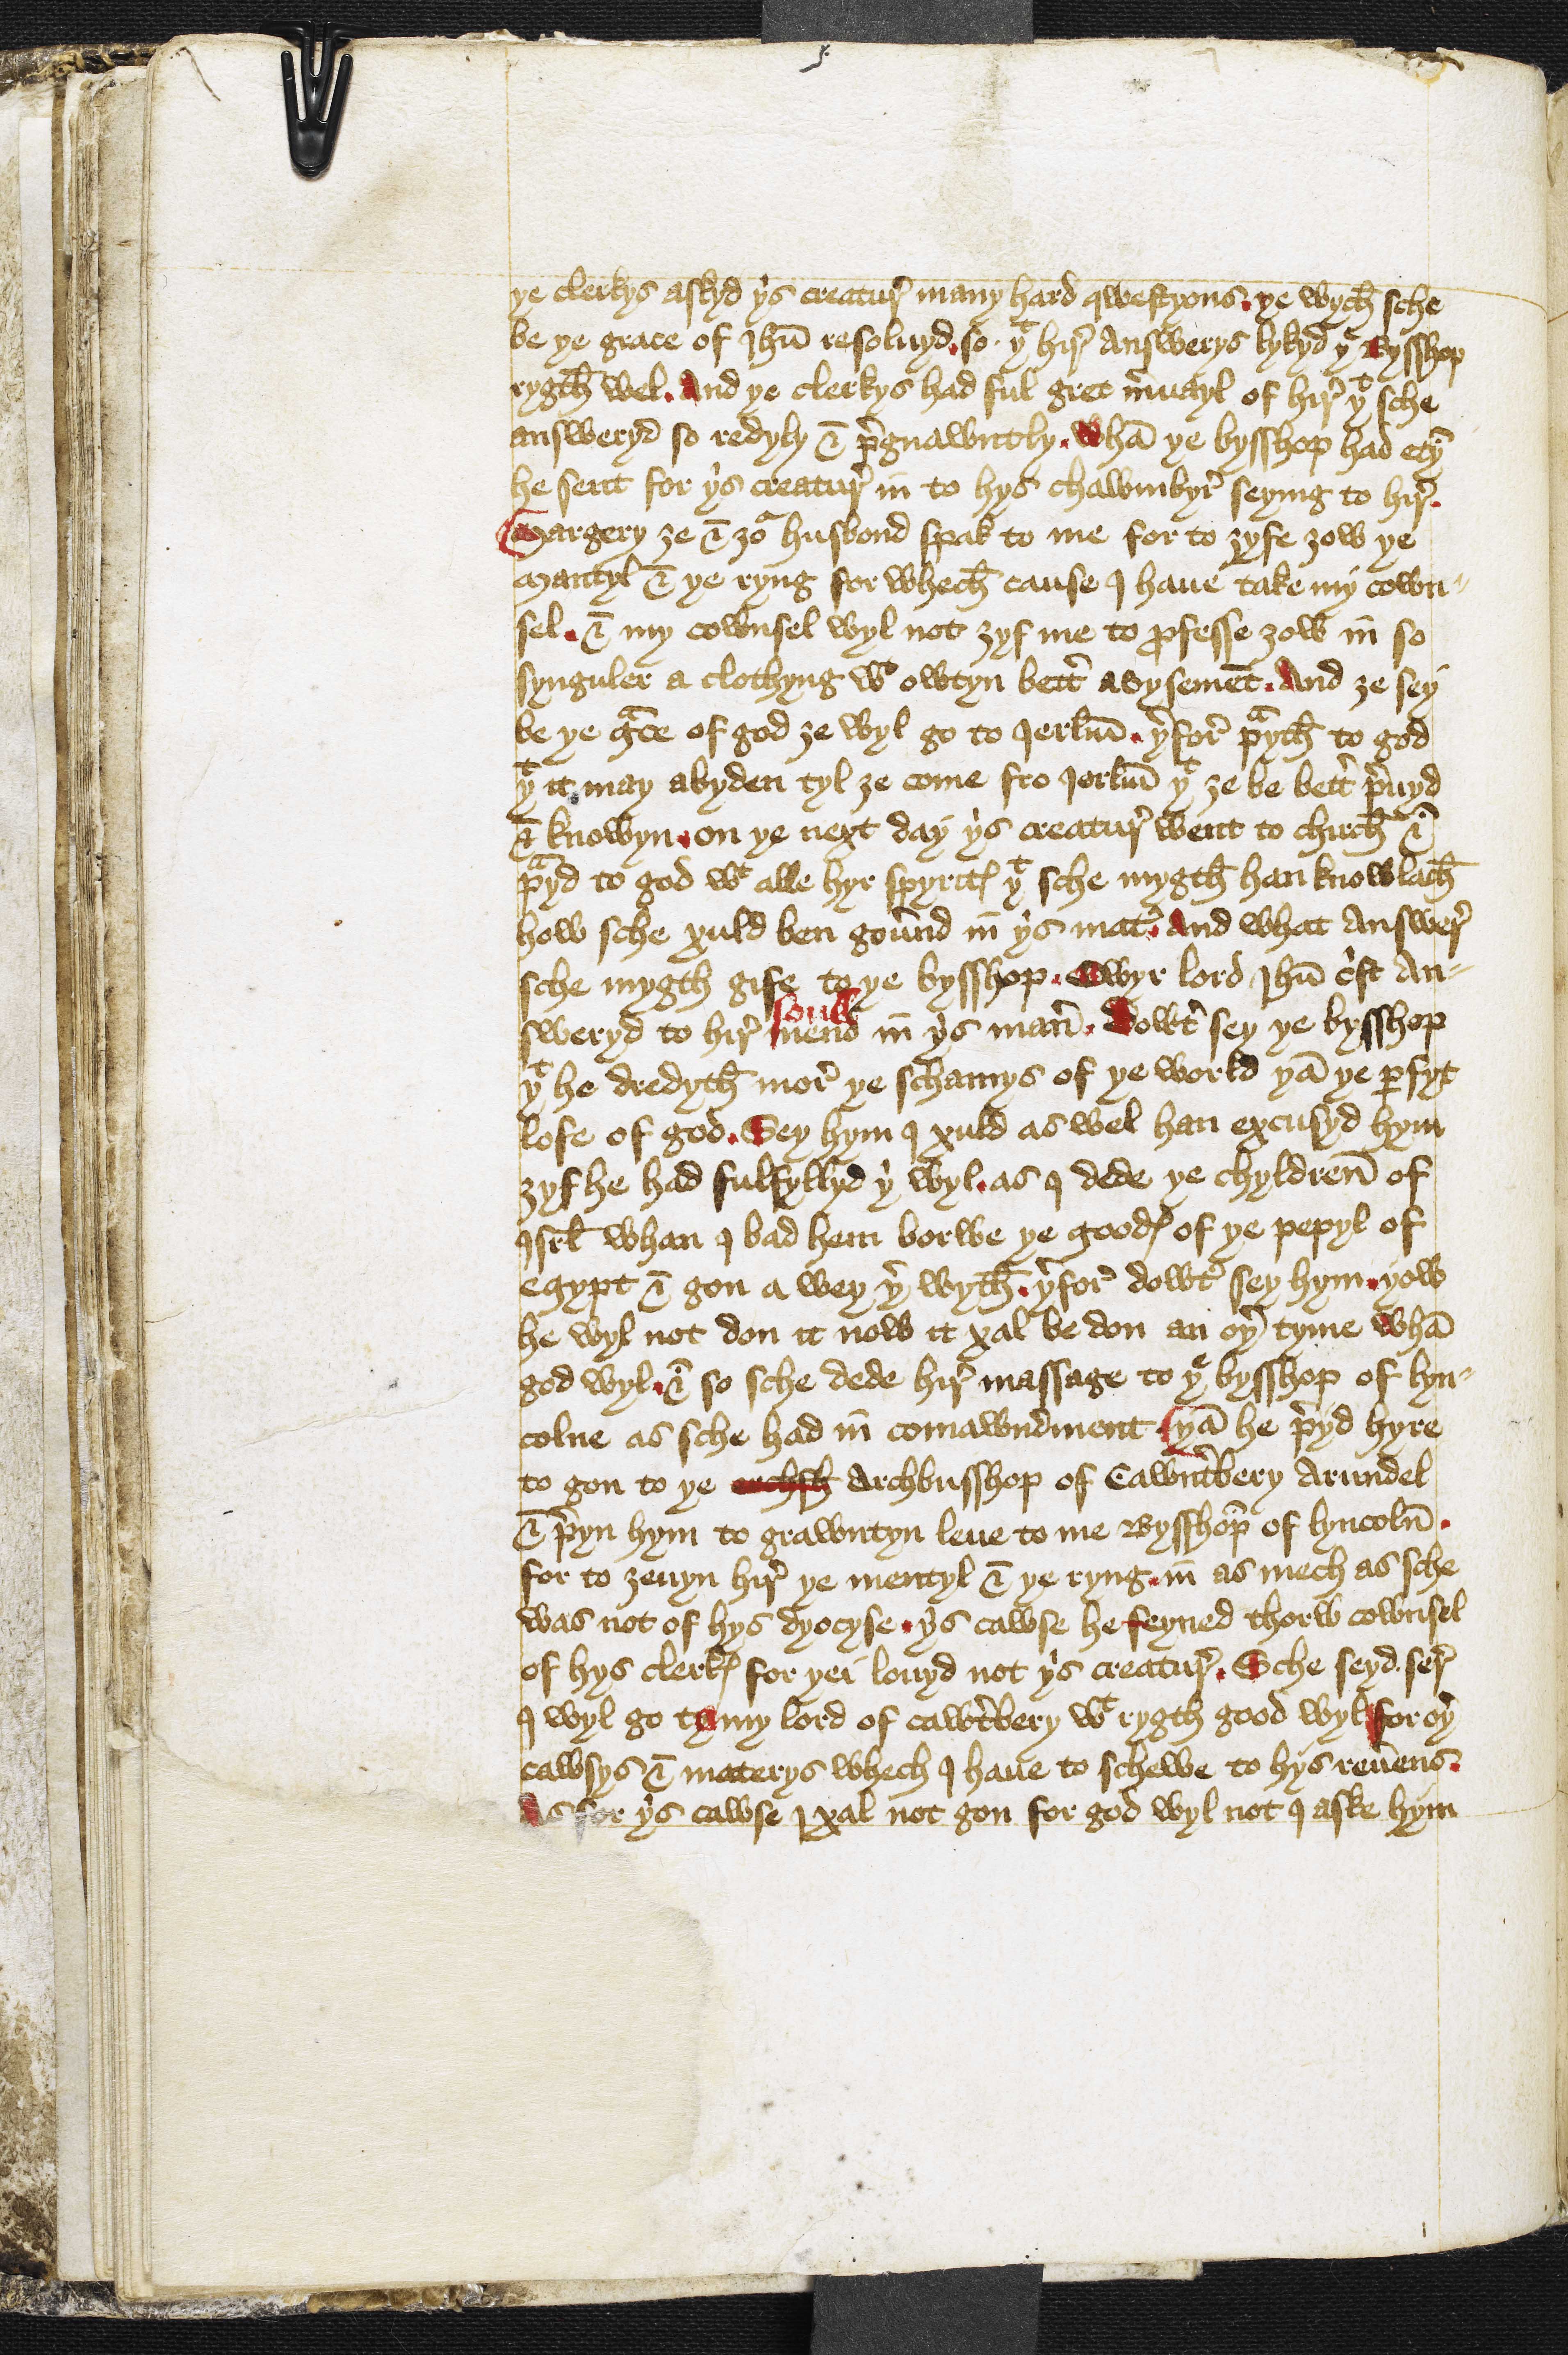 ye clerkys askyd yͥs creatur̛ many hard qwestyons. ye wych̄ sche
be ye grace of Ihū resoluyd. so. yͭ hir̛ Answerys lykyd yͤ Bysshop
rygth̄ wel. And ye clerkys had ful gret m̛uayl of hir̛ yͭ sche
answeryd so redyly & p̛gnawntly. Whā ye bysshop had etyn̄
he sent for yͥs creatur̛ in to hys chawmbyr̛ seying to hir̛.
Margery ze & zoͬ husbond spak to me for to zyfe zow ye
Mantyl & ye ryng for whech̄ cause I haue take my cown-
sel. & my cownsel wyl not zyf me to ꝓfesse zow in̄ so
synguler a clothyng wͭ owtyn bett̛ avysemēt. And ze sey
be ye gͣce of god ze wyl go to Ierlm̄. y̛for̛ pͣyth̄ to god
yͭ it may abyden tyl ze come fro Ierlm̄ yͭ ze be bett̛ p̛uyd
& knowyn. on ye next day yͥs creatur̛ went to chirch̄ &
pͣyd to god wͭ alle hyr spyritꝭ yͭ sche mygth̄ han knowlach̄
how sche xuld ben goưnd in̄ yͥs mat̛. And what Answer̛
sche mygth gife to ye bysshop. Owyr lord Ihū cͥst An-
sweryd to hir̛ mend sowle in̄ yͥs man̛. Dowt̛ sey ye bysshop
yͭ he dredyth̄ mor̛ ye schamys of ye world yā ye ꝑfyt
lofe of god. Sey hym I xuld as wel han excusyd hym
zyf he had fulfyllyd yͥ wyl. as I dede ye chyldren̄ of
Isrł whan I bad hem borwe ye goodꝭ of ye pepyl of
egypt & gon a wey y̛ wyth̄. y̛for̛ dowt̛ sey hym. yow
he wyl not don it now it xal be don an oy̛ tyme whā
god wyl. & so sche dede hir̛ massage to yͤ bysshop of lyn-
colne as sche had in̄ comawndment. yā he p̛yd hyre
to gon to ye erchsh Archbusshop of Cawnt̛bery Arundel
& p̛yn hym to grawntyn leue to me Bysshop̄ of lyncoln̄.
for to zeuyn hir̛ ye mentyl & ye ryng. in̄ as mech as sche
was not of hys dyocyse. yͥs cawse he feyned thorw cownsel
of hys clerkꝭ for yei louyd not yͥs creatur̛. Sche seyd. ser̛
I wyl go to my lord of cawt̛bery wͭ rygth good wyl for oy̛
cawsys & materys whech I haue to schewe to hys reưens.
As for yͥs cawse I xal not gon for god wyl not I aske hym